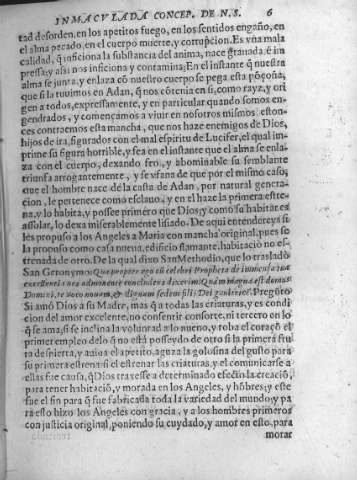 INMACVLADA CONCEP. DE N.S. 6
tad desorden, en los apetitos fuego, en los sentidos engaño, en
el alma pecado, en el cuerpo muerte, y corrupcion. Es vna mala
calidad, q̃ inficiona la substancia del anima, nace grauada è im
pressa, y assi nos inficiona y contamina; En el instante q̃ nuestra
alma se junta, y enlaza cō nuestro cuerpo se pega esta pōçoña,
que si la tuuimos en Adan, q̃ nos cōtenia en si, como rayz, y ori
gen a todos, expressamente, y en particular quando somos en-
gendrados, y començamos a viuir en nosotros mismos: enton-
ces contraemos esta mancha, que nos haze enemigos de Dios,
hijos de ira, figurados con el mal espiritu de Lucifer, el qual im-
prime su figura horrible, y fea en el instante que el alma se enla-
za con el cuerpo, dexando feo, y abominable su semblante
triunfa arrogantemente, y se vfana de que por el mismo caso,
que el hombre nace de la casta de Adan, por natural genera-
cion, le pertenece como esclauo, y en el haze la primera estre-
na, y lo habita, y possee primero que Dios; y como su habitar es
assolar, lo dexa miserablemente lisiado. De aqui entendereys si
les propuso a los Angeles a Maria con mancha original, pues se
la propuso como casa nueua, edificio flamante, habitaciō no es-
trenada de otro. De la qual dixo San Methodio, que lo trasladò
San Geronymo: Que propter ego cū celebri Propheta de immensa tua
excellentia admonente concludens dixerim: Quàm magna est domus
Domini, te voco nouum, & dignum sedem filij Dei
Si amò Dios a su Madre, mas q̃ a todas las criaturas, y es condi
cion del amor excelente, no consentir consorte, ni tercero en lo
q̃ se ama, si se inclina la voluntad a lo nueuo, y roba el coraçō el
primer empleo del o q̃ no està posseydo de otro si la primera fru
ta despierta, y auiua el apetito, aguza la golosina del gusto para
su primera estrena si el estrenar las criaturas, y el comunicarse a
ellas fue causa, q̃ Dios traxesse a determinado efecto la creaciō,
para tener habitaciō, y morada en los Angeles, y hōbres; y este
fue el fin para q̃ fue fabricada toda la variedad del mundo; y pa
ra esto hizo los Angeles con gracia, y a los hombres primeros
con justicia original, poniendo su cuydado, y amor en esto, para
morar